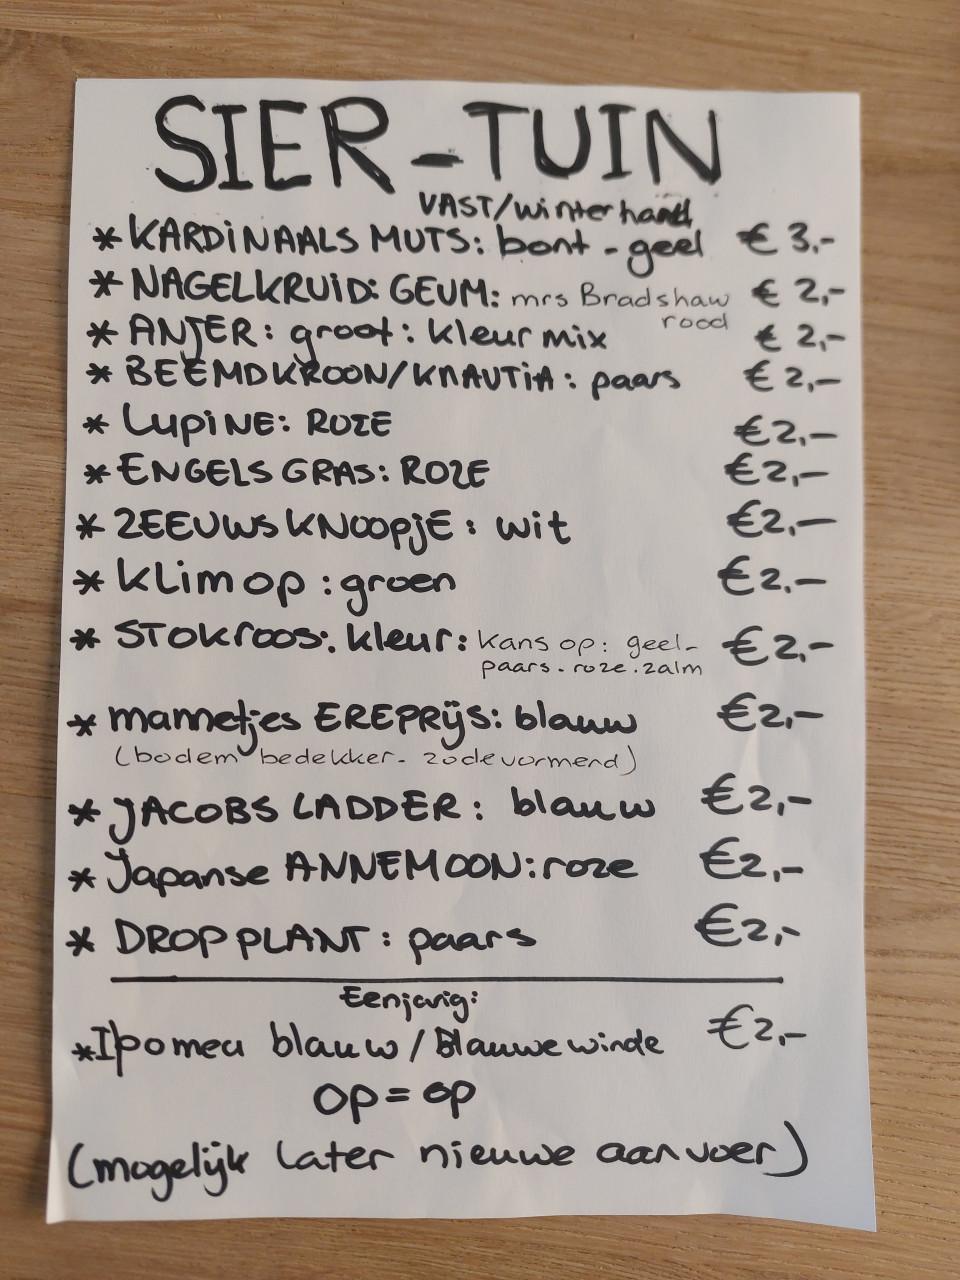 SIER-TUIN
VAST/winterhard
* KARDINAALS MUTS: bont - geel € 3,-
* NAGELKRUID: GEUM: mrs Bradshaw € 2,-
rood
* ANJER: groot: kleur mix € 2,-
* BEEMDKROON/KNAUTIA: paars € 2,-
* Lupine: ROZE € 2,-
* ENGELS GRAS: ROZE € 2,-
* ZEEUWS KNOOPJE: wit € 2,-
* Klimop: groen € 2,-
* STOKroos: kleur: kans op: geel- € 2,-
paars. roze. zalm
* mannetjes EREPRIJS: blauw € 2,-
(bodem bedekker- zodevormend)
* JACOBS LADDER: blauw € 2,-
* Japanse ANNEMOON: roze € 2,-
* DROPPLANT: paars € 2,-
Eenjarig:
* Ipomea blauw / Blauwe winde € 2,-
op = op
(mogelijk later nieuwe aanvoer)